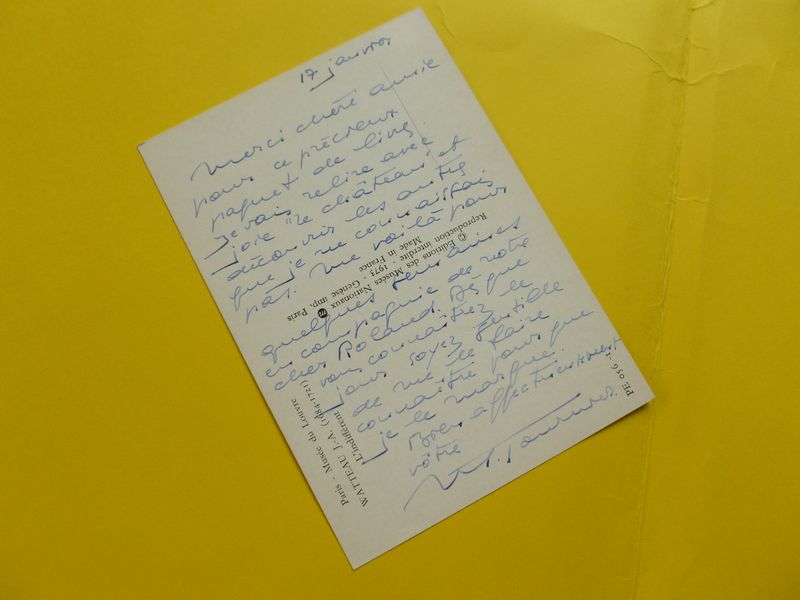 17 janvier
Merci chère amie
pour ce précieux
paquet de livres.
Je vais relire avec
joie "le château" et
découvrir les autres
que je ne connaissais
pas. Me voilà pour
quelques semaines
en compagnie de votre
cher Roland. Dès que
vous connaîtrez le
jour soyez gentille
de me le faire
connaître pour que
je le marque.
Bien affectueusement
vôtre
© Éditions des Musées Nationaux
Reproduction interdite - 1973 - Genèse imp. Paris
Made in France
Paris - Musée du Louvre
WATTEAU J.-A. (1684-1721)
L'indifférent
PE 056-1